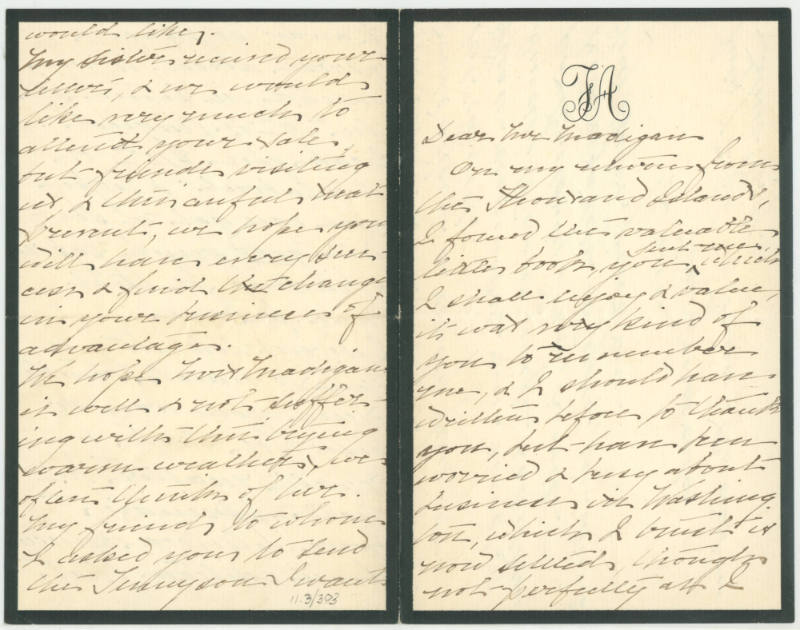 FA
Dear Mr Madigan
On my return from
the Thousand Islands,
I found this valuable
little book, you sent me, which
I shall enjoy & value,
it was very kind of
you to remember
me, & I should have
written before to thank
you, but have been
worried & busy about
business in Washing
ton, which I trust is
now settled, though
not perfectly as I
would like.
My sister received your
letter, & we would
like very much to
attend your sale,
but friends visiting
us, & this awful heat
prevents, we hope you
will have every suc-
cess & find the change
in your business of
advantage.
We hope Mrs Madigan
is well & not suffer-
ing with this trying
warm weather, we
often think of her.
My friend to whom
I asked you to send
the Tennyson wants
11.3/393